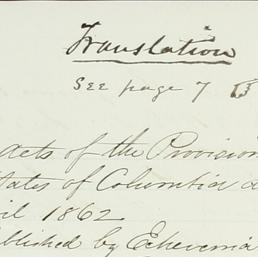 Translation
See page 7
acts of the Provision
tates of Columbia
il 1862
ublished by Echeverria